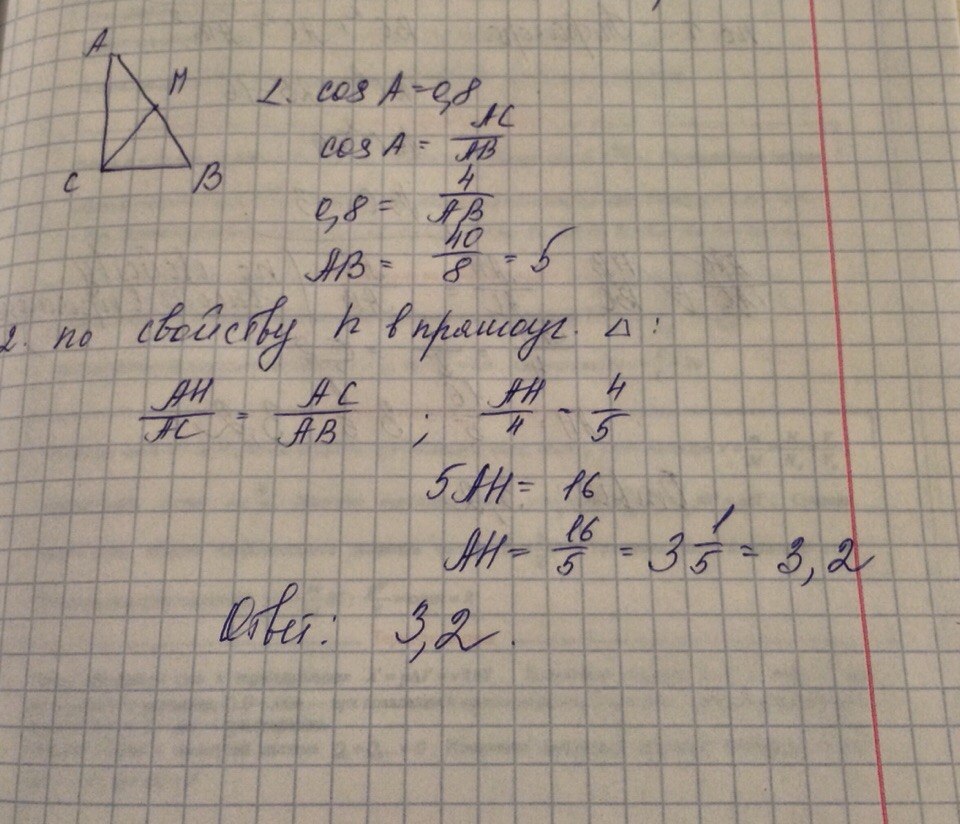 A
H
C
B
1. cos A = 0,8
cos A = AC/AB
0,8 = 4/AB
AB = 40/8 = 5
2. по свойству h в прямоуг. △:
AH/AC = AC/AB ; AH/4 = 4/5
5AH = 16
AH = 16/5 = 3 1/5 = 3,2
Ответ: 3,2.